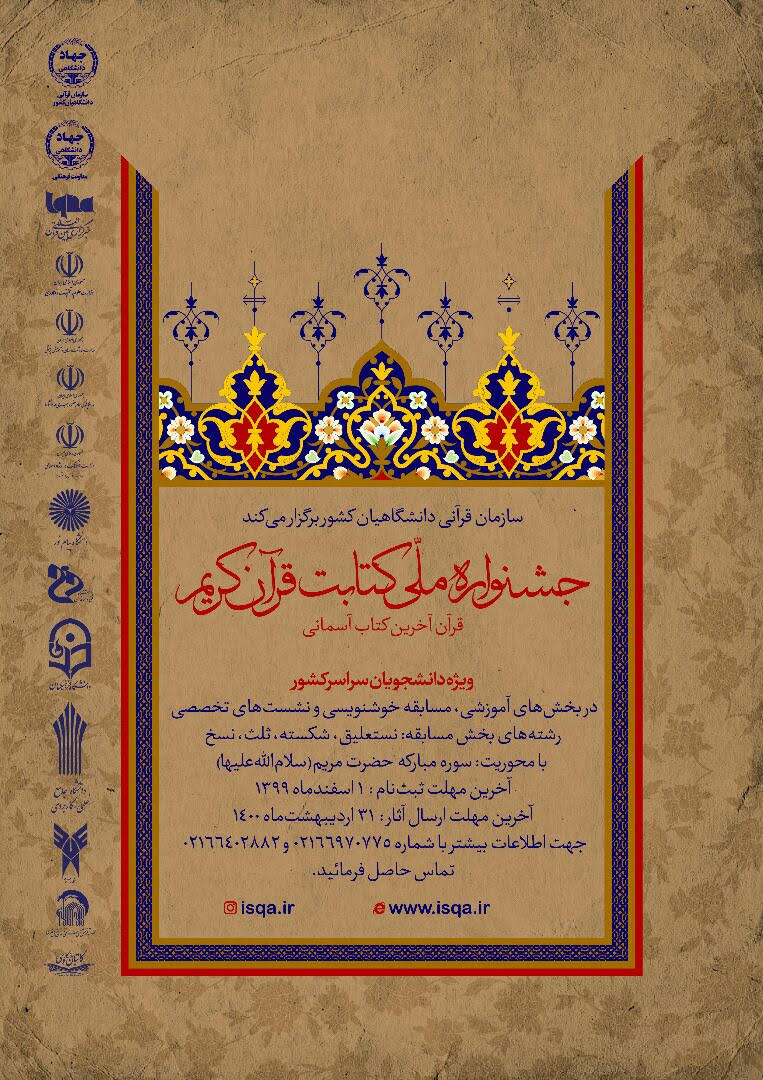 سازمان قرآنی دانشگاهیان کشور برگزار می‌کند
جشنواره ملّی کتابت قرآن کریم
قرآن آخرین کتاب آسمانی
ویژه دانشجویان سراسر کشور
در بخش‌های آموزشی، مسابقه خوشنویسی و نشست‌های تخصصی
رشته‌های بخش مسابقه: نستعلیق، شکسته، ثلث، نسخ
با محوریت: سوره مبارکه حضرت مریم (سلام‌الله‌علیها)
آخرین مهلت ثبت‌نام : ۱ اسفندماه ۱۳۹۹
آخرین مهلت ارسال آثار: ۳۱ اردیبهشت‌ماه ۱۴۰۰
جهت اطلاعات بیشتر با شماره ۰۲۱۶۶۹۷۰۷۷۵ و ۰۲۱۶۶۴۰۲۸۸۲
تماس حاصل فرمائید.
isqa.ir www.isqa.ir
جهاد
دانشگاهی
سازمان قرآنی
دانشگاهیان کشور
جهاد
دانشگاهی
معاونت فرهنگی
iqna
دانشگاه پیام نور
دانشگاه فرهنگیان
دانشگاه جامع
علمی کاربردی